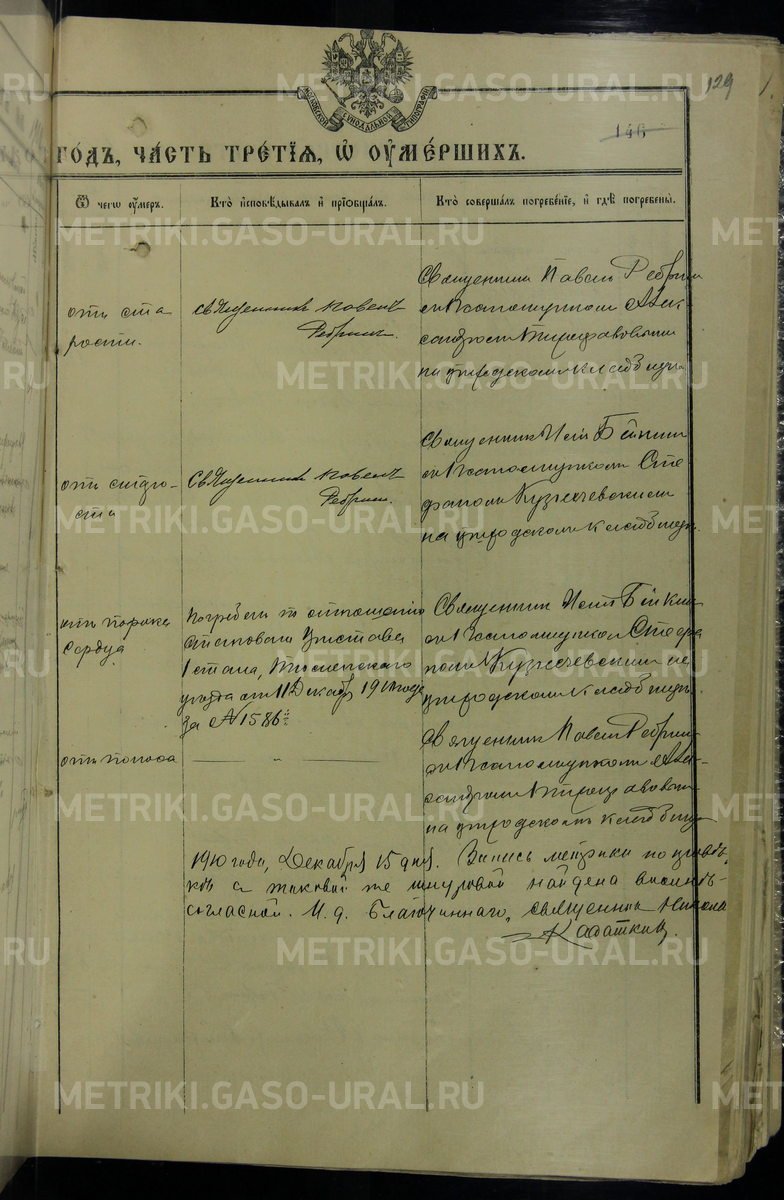 129
146
ГО́ДЪ, ЧА́СТЬ ТРЕ́ТІѦ, Ѡ҆ ОУ҆МЕ́РШИХЪ.
Ѿ чегѡ ᲂу҆́меръ.
Кто̀ и҆сповѣ́дывалъ и҆ прїѡбща́лъ.
Кто̀ соверша́лъ погребе́нїе, и҆ гдѣ̀ погребены̀.
отъ ста
рости.
Священникъ Павелъ
Ребринъ
Священникъ Павелъ Ребрин
съ псаломщикомъ Алек-
сандромъ
на приходскомъ кладбищѣ
Священникъ Павелъ
Ребринъ.
Священникъ
съ псаломщикомъ Сте
фаномъ Кузнечевскимъ
на приходскомъ кладбищѣ.
отъ порока
сердца
Погребенъ по отношенію
Становаго Пристава
1 стана,
уѣзда отъ 11 Декабря 1910 года
за № 1586
Священникъ
съ псаломщикомъ Стефа
номъ Кузнечевскимъ на
приходскомъ кладбищѣ.
отъ поноса
Священникъ Павелъ Ребрин
съ псаломщикомъ Алек-
сандромъ
на приходскомъ кладбищѣ
1910 года, Декабря 15 дня. Запись метрики по
съ таковой же шнуровой найдена
согласной. И. д. Благочиннаго, священникъ
Кабаткинъ.
METRIKI.GASO-URAL.RU